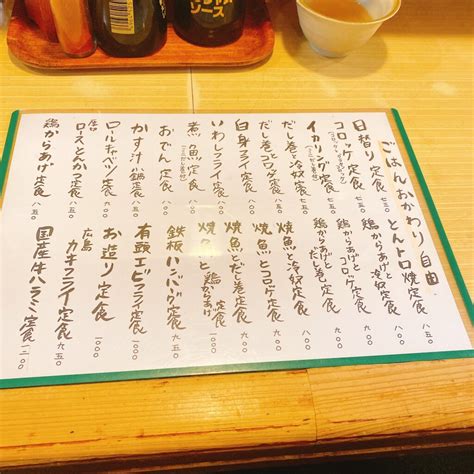 ソース
ごはんおかわり自由
日替り定食 七五〇
コロッケ定食
イカリング定食
だし巻と冷奴定食
だし巻とコロッケ定食
白身フライ定食 八五〇
いわしフライ定食 八五〇
おでん定食
煮魚定食
かす汁 定食
ロールキャベツ定食
ロースとんかつ定食 八五〇
鶏からあげ定食 八五〇
とんトロ焼定食 八五〇
鶏からあげと冷奴定食
鶏からあげとコロッケ定食 九〇〇
鶏からあげとだし巻定食 九〇〇
焼魚と冷奴定食
焼魚とコロッケ定食 九〇〇
焼魚とだし巻定食 九〇〇
焼魚と鶏からあげ定食
鉄板ハンバーグ定食 九五〇
有頭エビフライ定食 一〇〇〇
お造り定食 一〇〇〇
広島カキフライ定食 九五〇
国産牛ハラミ定食 一二〇〇